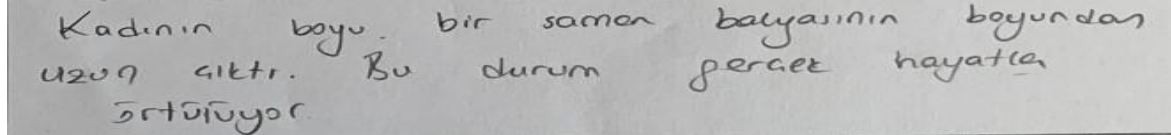 Kadının boyu. bir saman balyasının boyundan
uzun çıktı. Bu durum gerçek hayatla
örtülüyor.